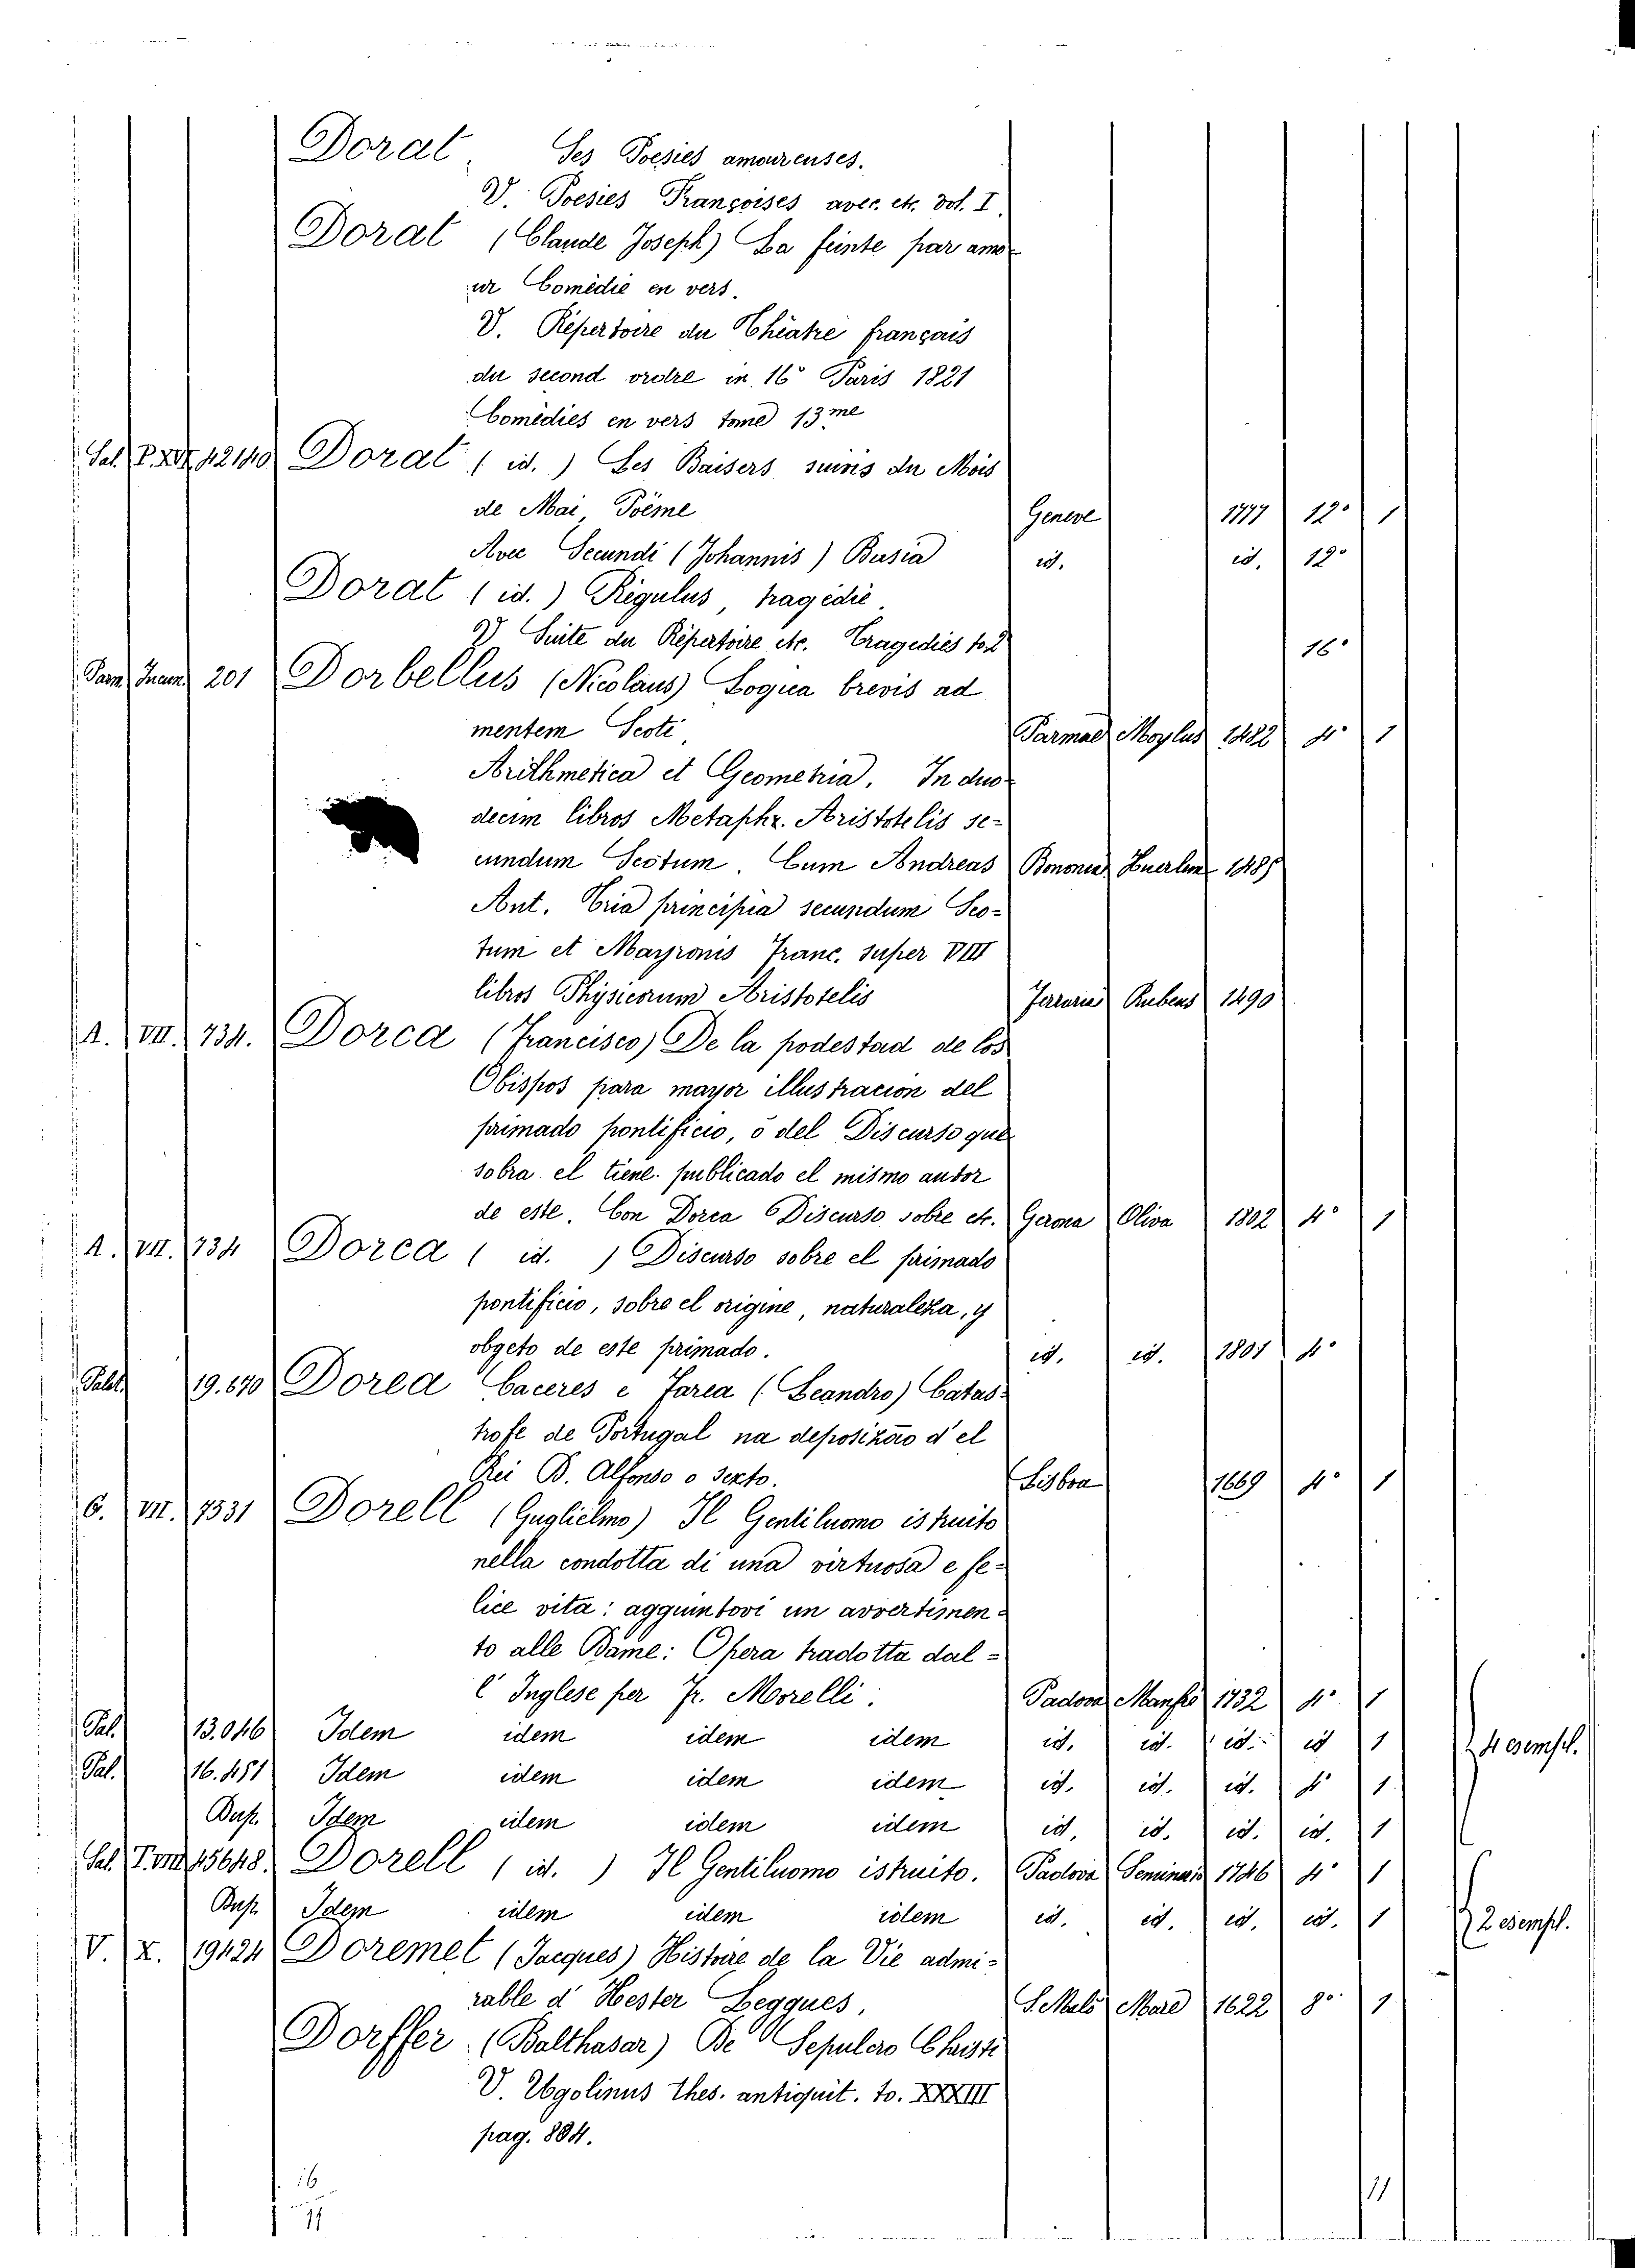 Dorat Ses Poesies amoureuses.
V. Poesies Françoises avec etc. vol. I.
Dorat (Claude Joseph) La feinte par amo-
ur Comédie en vers.
V. Répertoire du Théatre français
du second ordre in 16° Paris 1821
Comédies en vers tome 13.me
Sal. T. XVI. 12140 Dorat (id.) Les Baisers suivis du Mois
de Mai, Poëme Geneve 1777 12° 1
Avec Secundi (Johannis) Basia id. id. 12°
Dorat (id.) Régulus, tragédie.
V. Suite du Répertoire etc. Tragedies to. 2 16°
Parm. Incun. 201 Dorbellus (Nicolaus) Logica brevis ad
mentem Scoti, Parmae Moylus 1482 4° 1
Arithmetica et Geometria. In duo-
decim libros Metaphz. Aristotelis se-
cundum Scotum. Cum Andreas Bononiae 1485
Ant. Tria principia secundum Sco-
tum et Mayronis Franc. super VIII
libros Physicorum Aristotelis Ferrariae Rubeus 1490
A. VII. 734. Dorca (Francisco) De la podestad de los
Obispos para mayor illustracion del
primado pontificio, ó del Discurso que
sobra el tiene publicado el mismo autor
de este. Con Dorca Discurso sobre etc. Gerona Oliva 1802 4° 1
A. VII. 734 Dorca (id.) Discurso sobre el primado
pontificio, sobre el origine, naturaleza, y
obgeto de este primado. id. id. 1801 4°
Palat. 19.670 Dorea Caceres e Farea (Leandro) Catas-
trofe de Portugal na deposizáo d'el
Rei D. Alfonso o sexto. Lisboa 1669 4° 1
G. VII. 7531 Dorell (Guglielmo) Il Gentiluomo istruito
nella condotta di una virtuosa e fe-
lice vita: aggiuntovi un avvertimen-
to alle Dame: Opera tradotta dal-
l'Inglese per Fr. Morelli. Padova Manfrè 1732 4° 1
Pal. 13.046 Idem idem idem idem id. id. id. id 1
Pal. 16.451 Idem idem idem idem id. id. id. 4° 1 4 esempl.
Dup. Idem idem idem idem id. id. id. id. 1
Sal. T. VIII. 15648. Dorell (id.) Il Gentiluomo istruito. Padova Seminario 1746 4° 1
Dup. Idem idem idem idem id. id. id. id. 1 2 esempl.
V. X. 19424 Doremet (Jacques) Histoire de la Vie admi-
rable d'Hester Leggues, S. Malo Mare 1622 8° 1
Dorffer (Balthasar) De Sepulcro Christi
V. Ugolinus thes. antiquit. to. XXXIII
pag. 884.
16
11